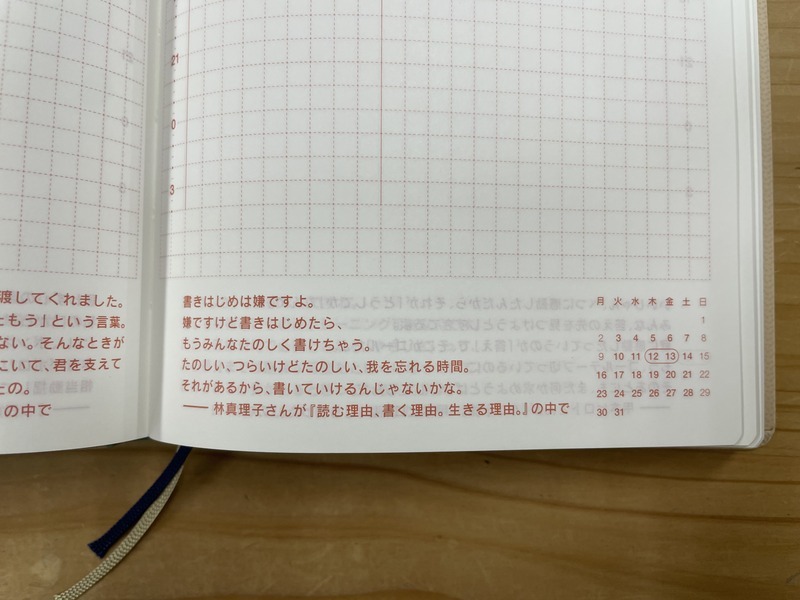 21
0
3
渡してくれました。
ともう」という言葉。
ない。そんなときが
こいて、君を支えて
の。
の中で
書きはじめは嫌ですよ。
嫌ですけど書きはじめたら、
もうみんなたのしく書けちゃう。
たのしい、つらいけどたのしい、我を忘れる時間。
それがあるから、書いていけるんじゃないかな。
―― 林真理子さんが『読む理由、書く理由。生きる理由。』の中で
月 火 水 木 金 土 日
1
2 3 4 5 6 7 8
9 10 11 12 13 14 15
16 17 18 19 20 21 22
23 24 25 26 27 28 29
30 31